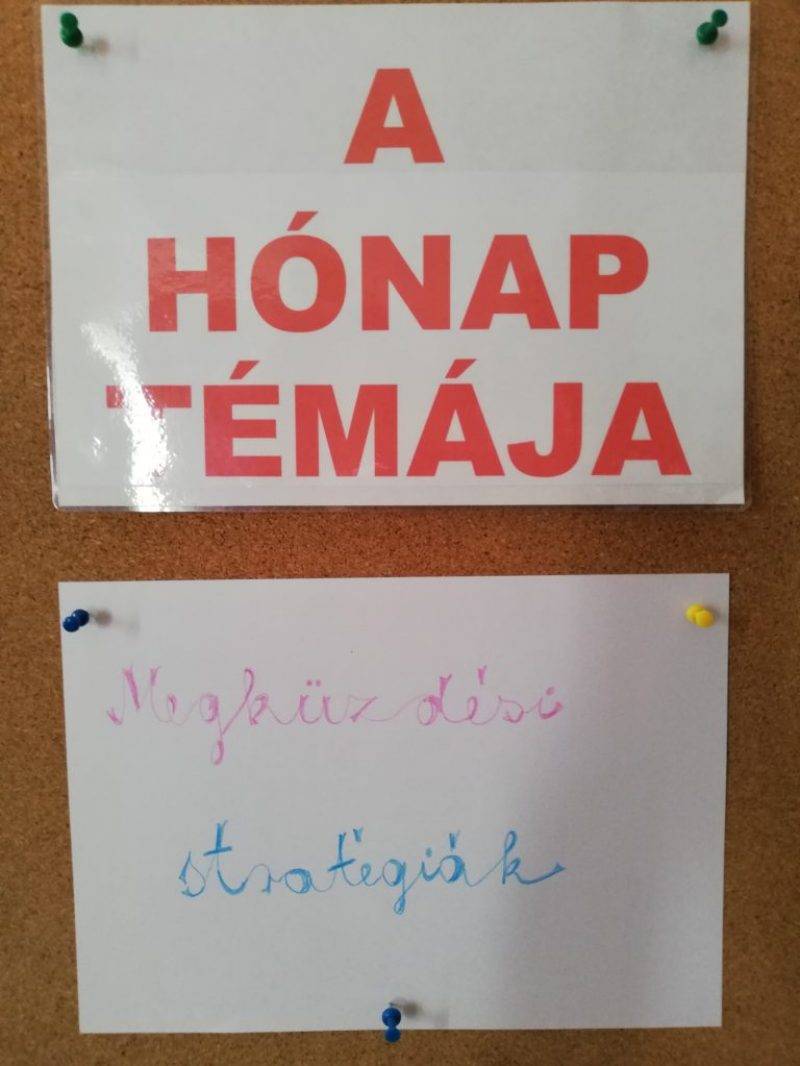 A
HÓNAP
TÉMÁJA
Megküzdési
stratégiák